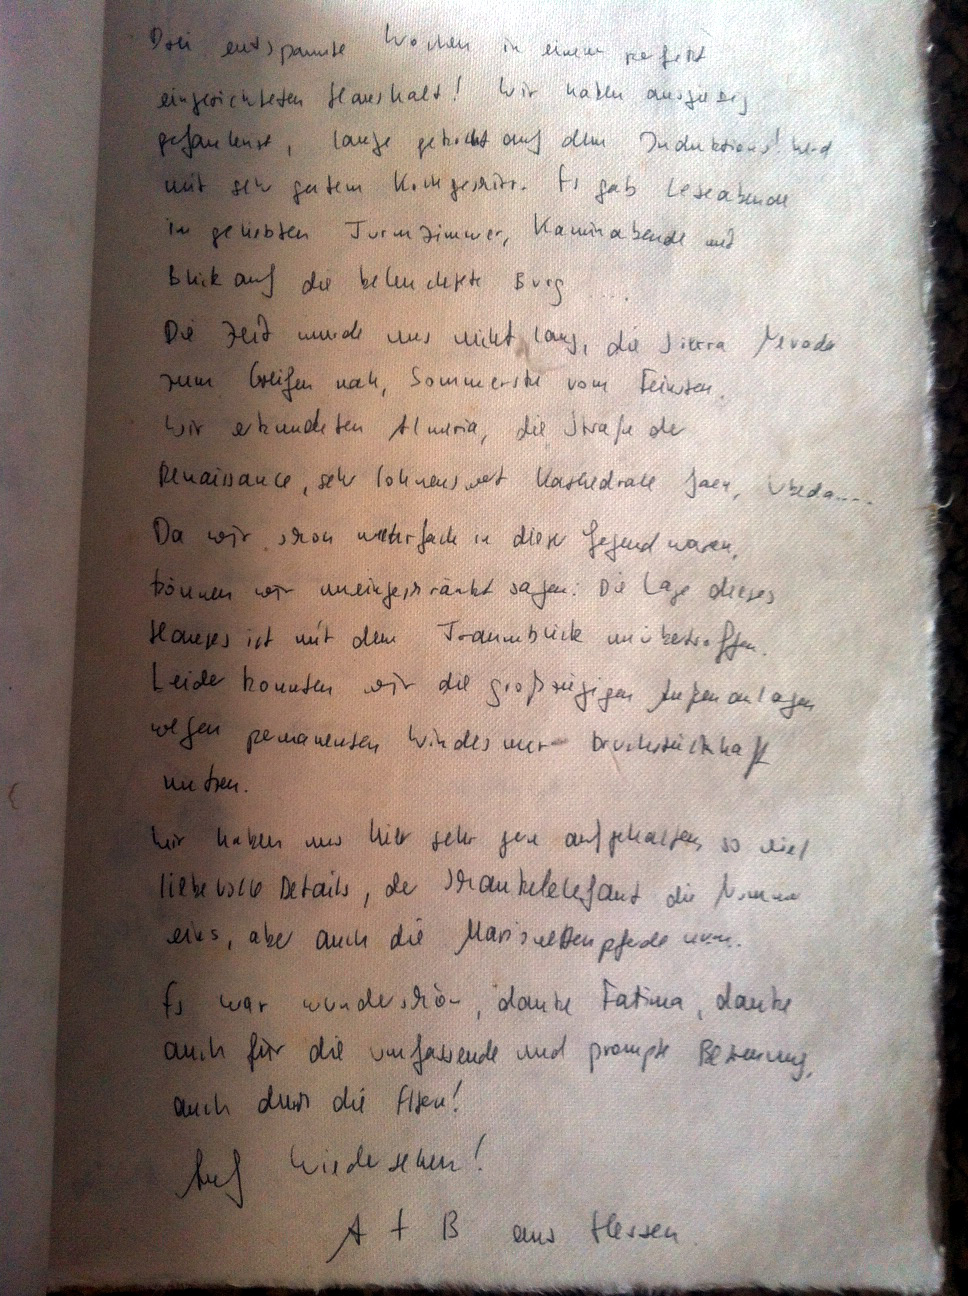 Drei entspannte Wochen in einem perfekt
eingerichteten Haushalt! Wir haben ausgiebig
gefaulenzt, lange gekocht auf dem Induktions! herd
mit sehr gutem Kochgeschirr. Es gab Leseabende
im geliebten Turmzimmer, Kaminabende mit
Blick auf die beleuchtete Burg ....
Die Zeit wurde uns nicht lang, die Sierra Nevada
zum Greifen nah, Sommerski vom Feinsten.
Wir erkundeten Almeria, die Straße der
Renaissance, sehr lohnenswert Kathedrale Jaen, Ubeda....
Da wir schon mehrfach in dieser Gegend waren,
können wir uneingeschränkt sagen: Die Lage dieses
Hauses ist mit dem Traumblick unübertroffen.
Leider konnten wir die großzügigen Außenanlagen
wegen permanenten Windes nur bruchstückhaft
nutzen.
Wir haben uns hier sehr gern aufgehalten, so viel
liebevolle Details, der Schaukelelefant die Nummer
eins, aber auch die Marionettenpferde uvm.
Es war wunderschön, danke Fatima, danke
auch für die umfassende und prompte Betreuung,
auch durch die Eltern!
Auf Wiedersehen!
A + B aus Hessen